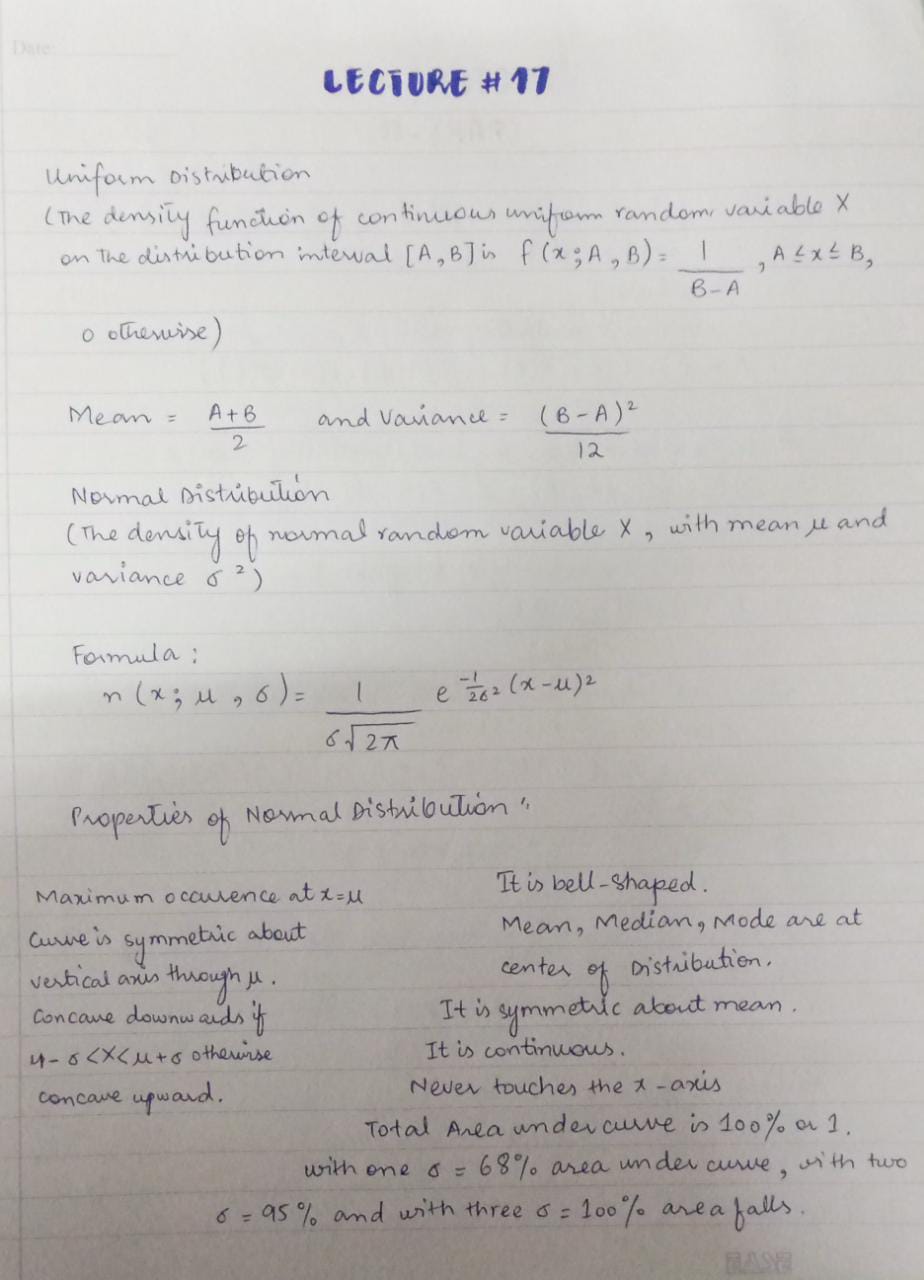 Date:
LECTURE # 17
Uniform Distribution
(The density function of continuous uniform random variable X
on the distribution interval [A, B] is f(x; A, B) = 1/(B-A), A ≤ x ≤ B,
0 otherwise)
Mean = (A+B)/2 and Variance = (B-A)²/12
Normal Distribution
(The density of normal random variable X, with mean μ and
variance σ²)
Formula:
n(x; μ, σ) = 1/(σ√2π) e^(-1/2σ² (x-μ)²)
Properties of Normal Distribution "
Maximum occurence at x=μ
Curve is symmetric about
vertical axis through μ.
Concave downwards if
μ-σ<X<μ+σ otherwise
concave upward.
It is bell-shaped.
Mean, Median, Mode are at
center of Distribution.
It is symmetric about mean.
It is continuous.
Never touches the x-axis
Total Area under curve is 100% or 1.
with one σ = 68% area under curve, with two
σ = 95% and with three σ = 100% area falls.